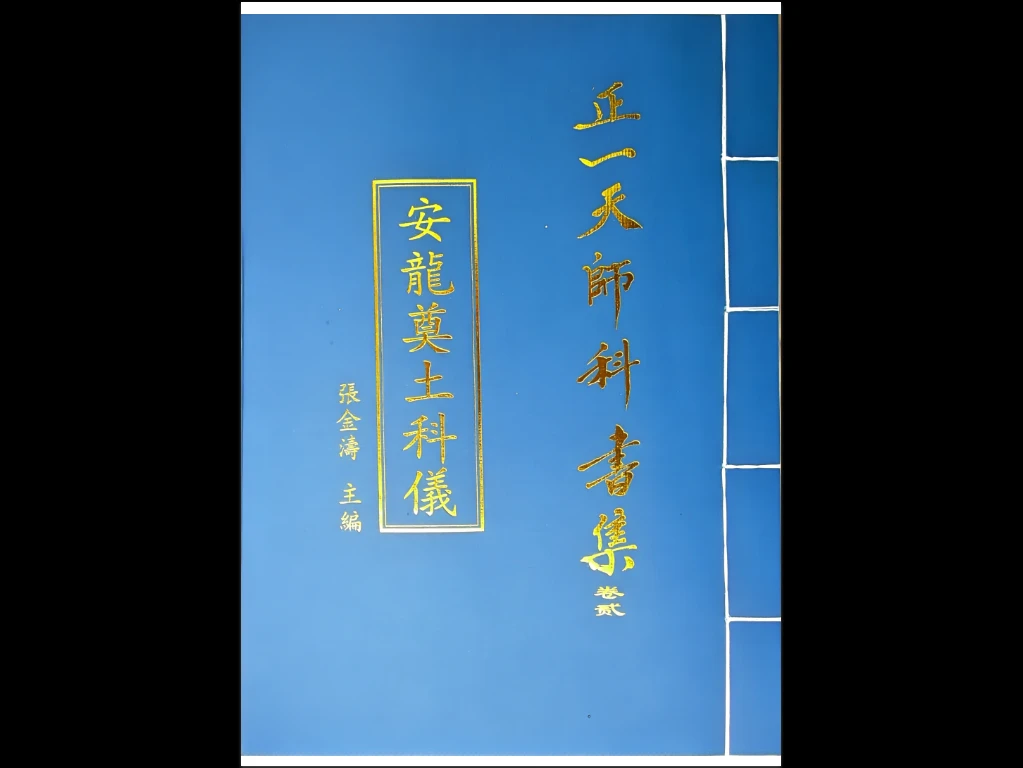 正一天師科書集
卷贰
安龍奠土科儀
張金濤 主編